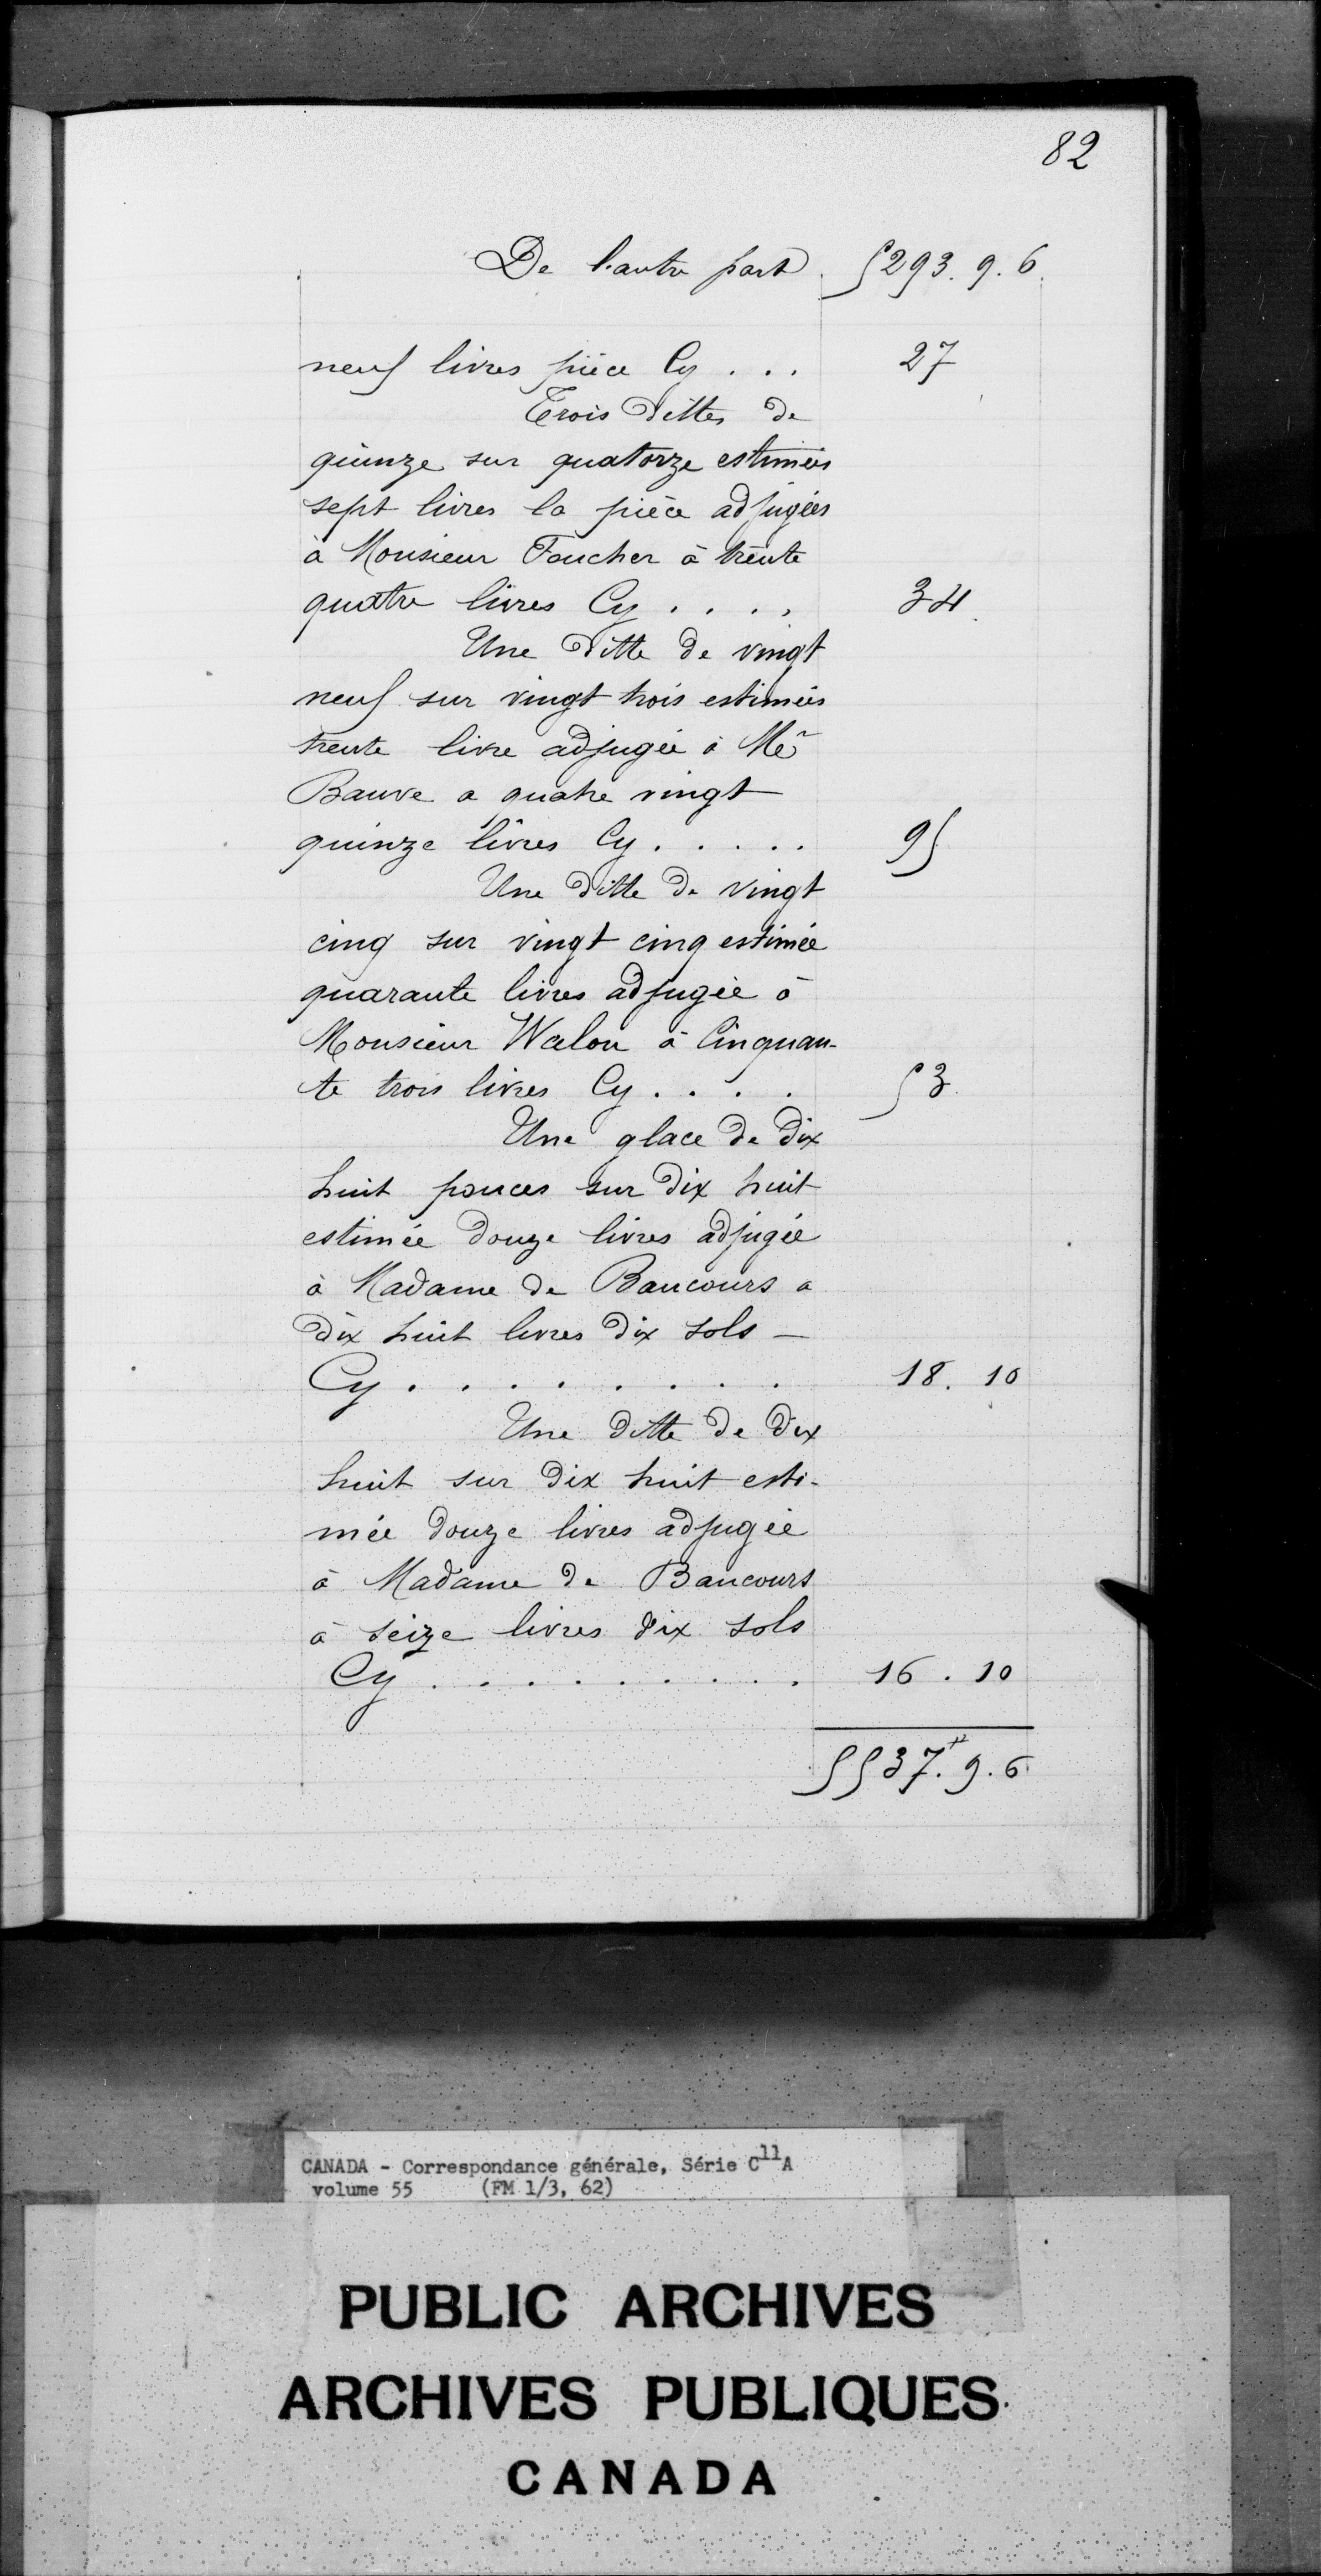 82
De l'autre part. 5293. 9. 6.
neuf livres pièce Cy . . . 27
Trois dittes de
quinze sur quatorze estimées
sept livres la pièce adjugées
à Monsieur Foucher à trente
quatre livres Cy . . . . 34.
Une ditte de vingt
neuf sur vingt trois estimées
trente livre adjugée à Mr
Bauve a quatre vingt
quinze livres Cy . . . . . 95
Une ditte de vingt
cinq sur vingt cinq estimée
quarante livres adjugée à
Monsieur Walon à Cinquan-
te trois livres Cy . . . . 53.
Une glace de dix
huit pouces sur dix huit
estimée douze livres adjugée
à Madame de Baucours a
dix huit livres dix sols —
Cy . . . . . . . . 18. 10
Une ditte de dix
huit sur dix huit esti-
mée douze livres adjugée
à Madame de Baucours
à seize livres dix sols
Cy . . . . . . . . 16. 10
5537.# 9. 6
CANADA - Correspondance générale, Série C11A
volume 55 (FM 1/3, 62)
PUBLIC ARCHIVES
ARCHIVES PUBLIQUES
CANADA